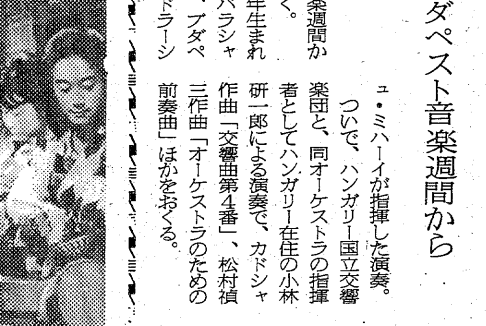 ダペスト音楽週間から
ュ・ミハーイが指揮した演奏。
ついで、ハンガリー国立交響
楽団と、同オーケストラの指揮
者としてハンガリー在住の小林
研一郎による演奏で、カドシャ
作曲「交響曲第4番」、松村禎
三作曲「オーケストラのための
前奏曲」ほかをおくる。
楽週間か
く。
年生まれ
バラシャ
・ブダペ
ドラーシ